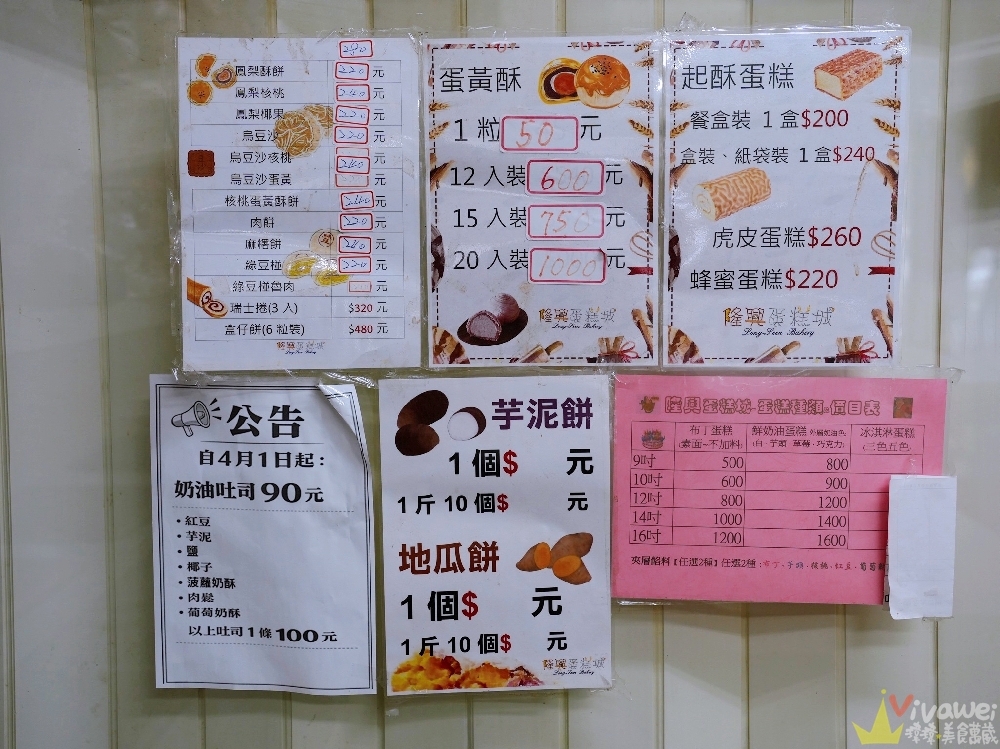 280
鳳梨酥餅 220 元
鳳梨核桃 240 元
鳳梨椰果 220 元
烏豆沙 220 元
烏豆沙核桃 240 元
烏豆沙蛋黃 元
核桃蛋黃酥餅 260 元
肉餅 220 元
麻糬餅 240 元
綠豆椪 220 元
綠豆椪魯肉 元
瑞士捲(3 入) $320
盒仔餅(6 粒裝) $480
隆興蛋糕城
Long-Seen Bakery
蛋黃酥
1 粒 50 元
12 入裝 600 元
15 入裝 750 元
20 入裝 1000 元
隆興蛋糕城
Long-Seen Bakery
起酥蛋糕
餐盒裝 1 盒$200
盒裝、紙袋裝 1 盒$240
虎皮蛋糕$260
蜂蜜蛋糕$220
隆興蛋糕城
Long-Seen Bakery
公告
自4月1日起：
奶油吐司 90 元
• 紅豆
• 芋泥
• 鹽
• 椰子
• 菠蘿奶酥
• 肉鬆
• 葡萄奶酥
以上吐司 1 條 100 元
芋泥餅
1 個$ 元
1 斤 10 個$ 元
地瓜餅
1 個$ 元
1 斤 10 個$ 元
隆興蛋糕城
Long-Seen Bakery
隆興蛋糕城-蛋糕種類-價目表
布丁蛋糕 鮮奶油蛋糕 冰淇淋蛋糕
(素面-不加料) (白、芋頭、草莓、巧克力) (三色五色)
9吋 500 800
10吋 600 900
12吋 800 1200
14吋 1000 1400
16吋 1200 1600
夾層餡料【任選2種】任選2種：布丁、芋頭、核桃、紅豆、葡萄
Vivawei
美食蔵